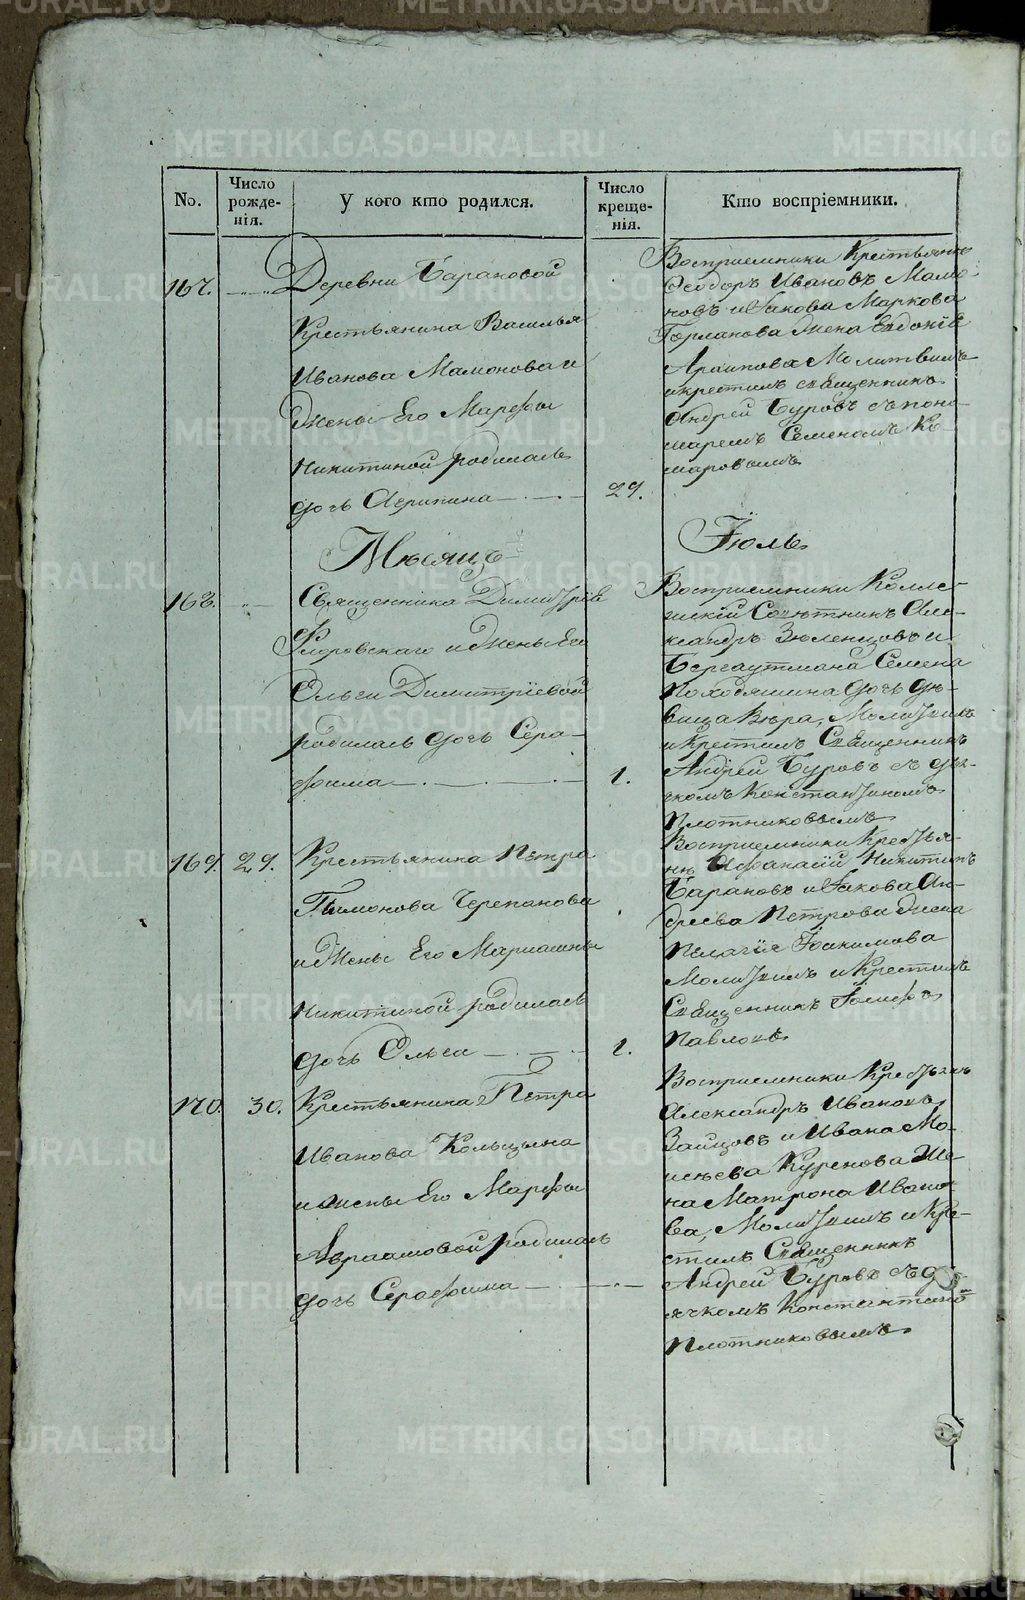 No.
Число рожде-нія.
У кого кто родился.
Число креще-нія.
Кто воспріемники.
167.
Деревни Барановой
Крестьянина Василья
Иванова Мамонова и
жены Его Марфы
Никитиной родилась
дочь Агрипина
29.
Восприемники Крестьянинъ
Феодоръ Ивановъ Мамо-
новъ и Якова Маркова
жена Евдокія
Архипова Молитвилъ
и крестилъ священникъ
Андрей Буровъ съ поно-
маремъ Семеномъ Ко
маровымъ
Мѣсяцъ
Іюль
168.
Священника Димитрія
Флоровскаго и жены Его
Ольги Димитріевой
родилась дочь Сера-
фима
1.
Восприемники Колле-
жскій Совѣтникъ Але-
ксандръ Зеленцовъ и
Бергаутмана Семена
Походяшина дочь дѣ-
вица Вѣра, Молитвилъ
и крестилъ Священникъ
Андрей Буровъ съ дья-
чкомъ Константиномъ
Плотниковымъ
169.
29.
Крестьянина Петра
Филимонова Черепанова
и жены Его Мариамны
Никитиной родилась
дочь Ольга
1.
Восприемники Крестья-
нъ Афанасій Никитинъ
Барановъ и Якова Ан-
дреева Петрова жена
Пелагія Іоакимова
Молитвилъ и Крестилъ
Священникъ Іосифъ
Павловъ
170.
30.
Крестьянина Петра
Иванова Кольцына
и жены Его Марфы
Авраамовой родилась
дочь Серафима
Восприемники Крестьянъ
Александръ Ивановъ
Зайцовъ и Ивана Мо-
исѣева Куренова Же-
на Матрона Ивано-
ва, Молитвилъ и Кре-
стилъ Священникъ
Андрей Буровъ съ дь-
ячкомъ Константиномъ
Плотниковымъ
METRIKI.GASO-URAL.RU